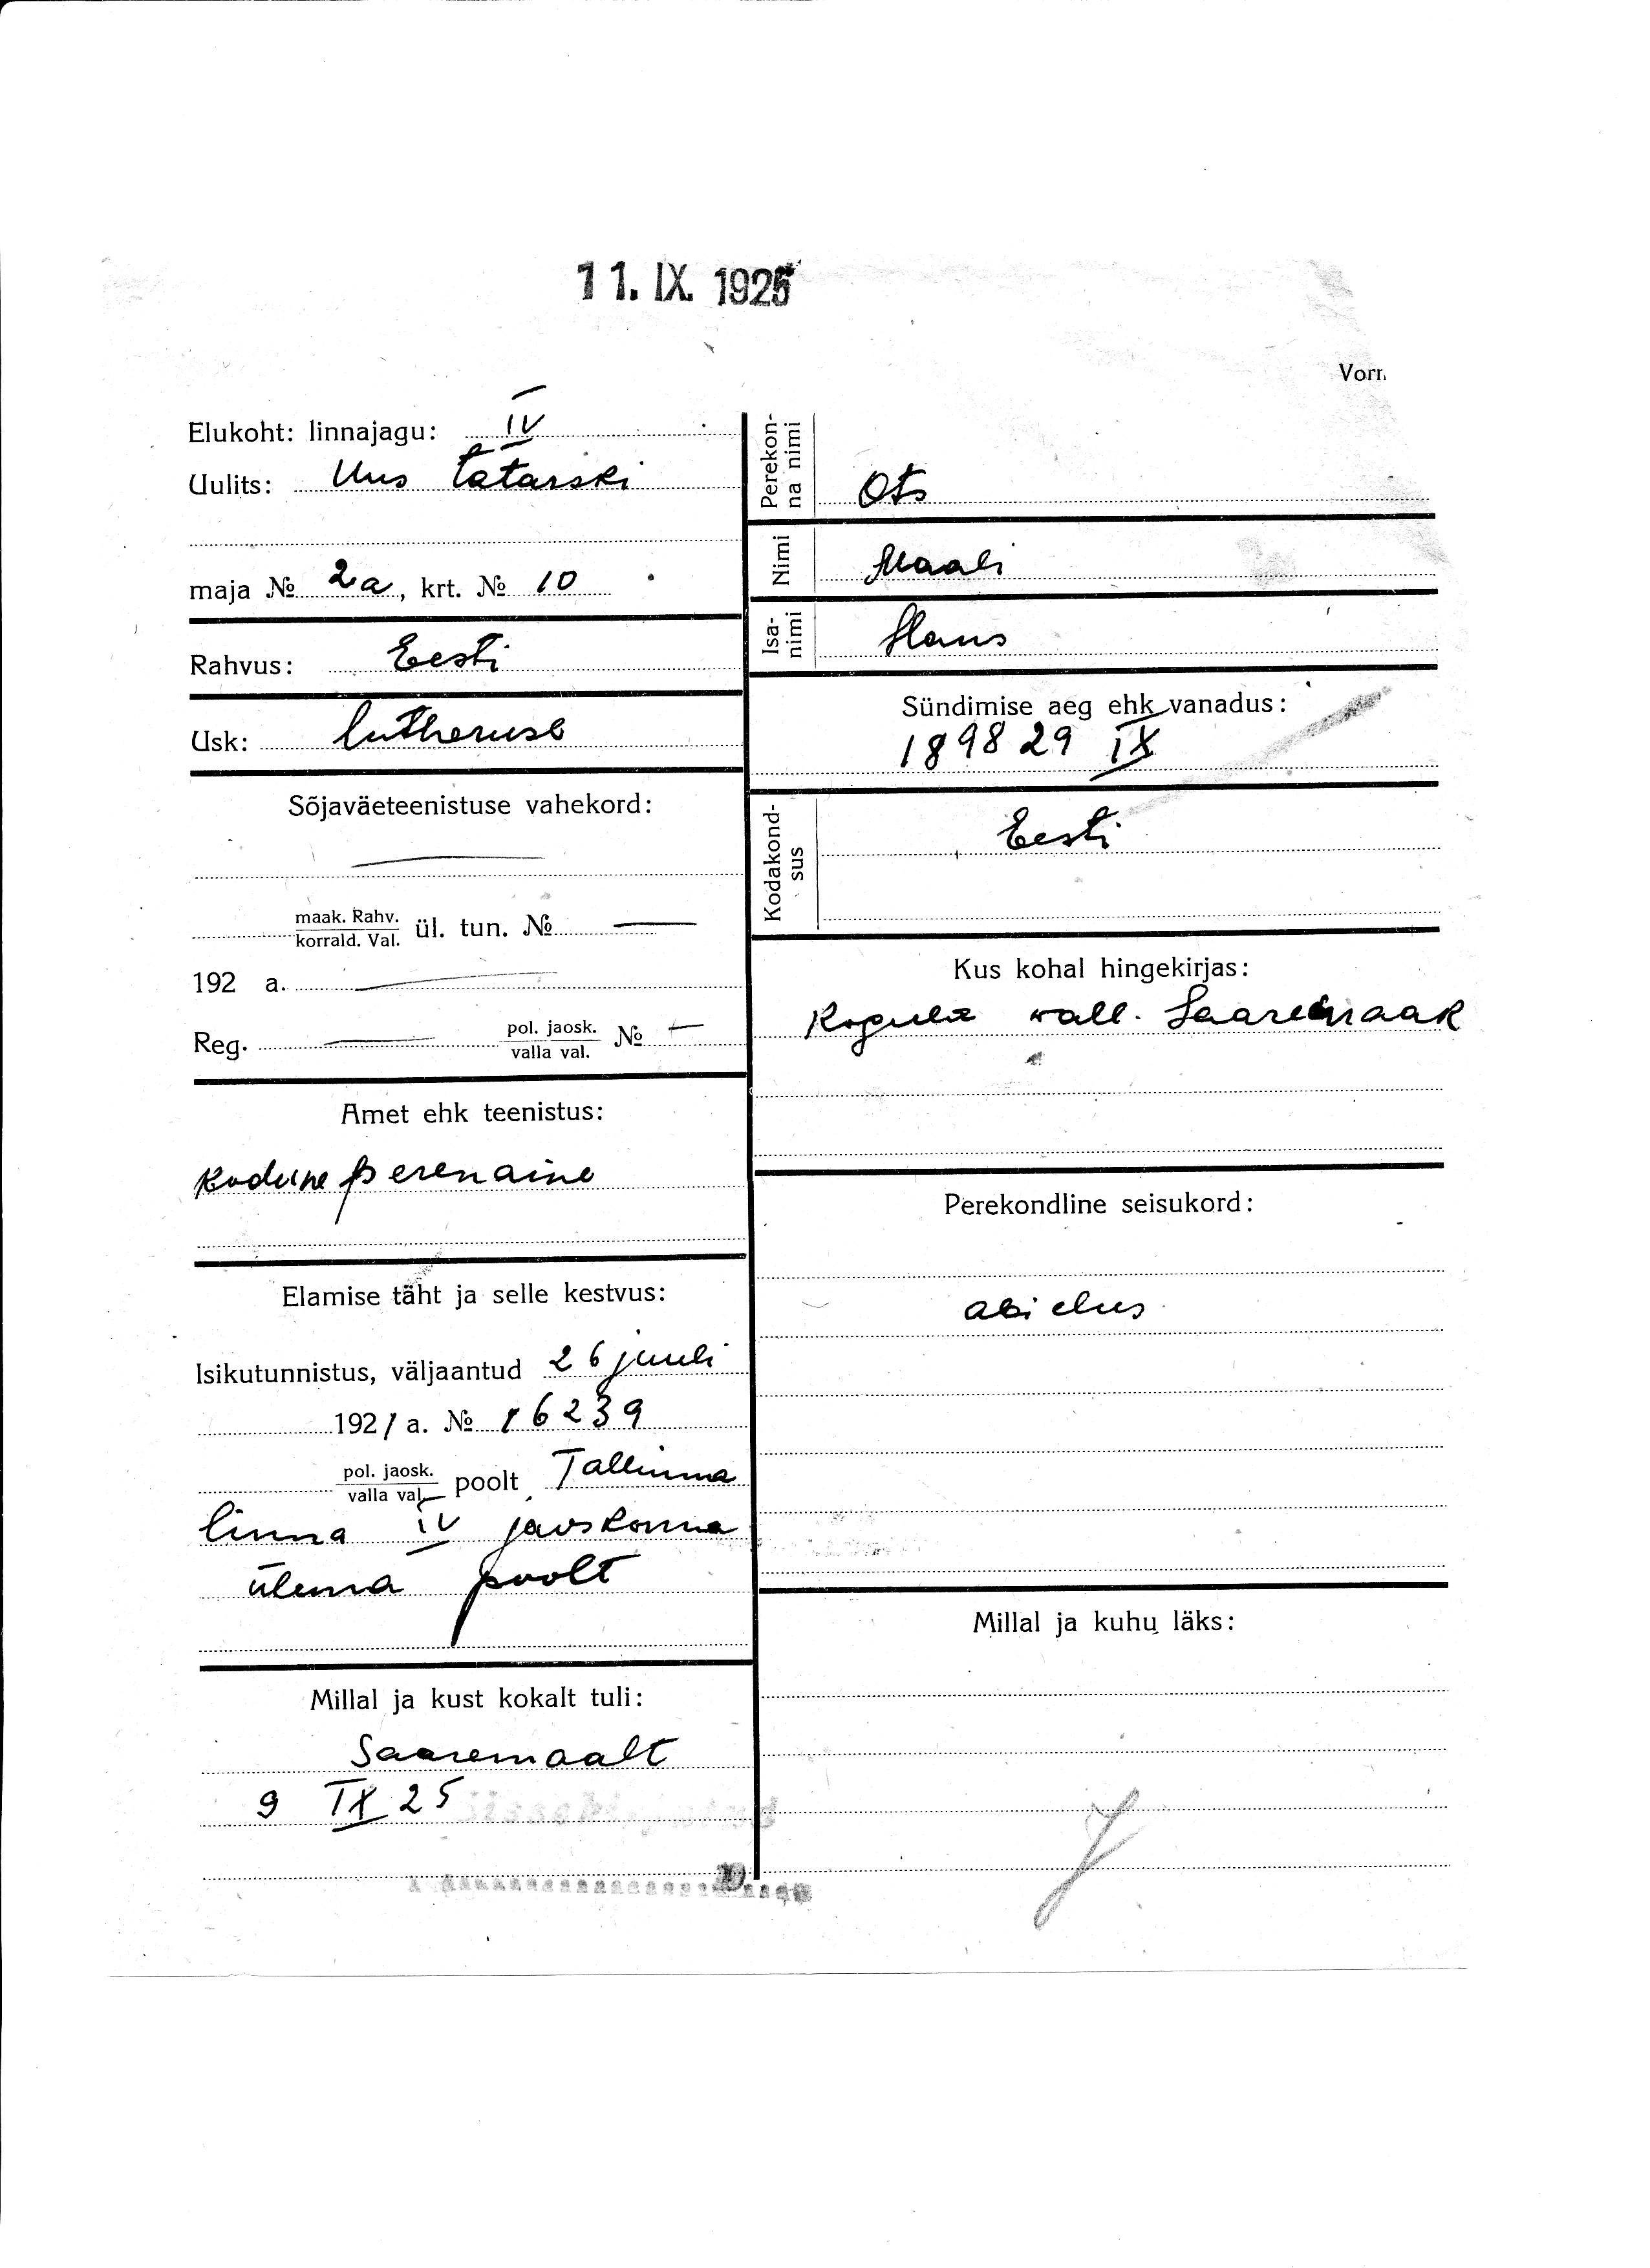 11. IX. 1925
Vorm
Elukoht: linnajagu: IV
Uulits: Uus Tatarski
maja № 2a, krt. № 10
Rahvus: Eesti
Usk: lutheruse
Sõjaväeteenistuse vahekord:
maak. Rahv.
korrald. Val. ül. tun. №
192 a.
Reg. pol. jaosk.
valla val. №
Amet ehk teenistus:
kodune perenaine
Elamise täht ja selle kestvus:
Isikutunnistus, väljaantud 26 juuli
1921 a. № 16239
pol. jaosk.
valla val. poolt Tallinna
linna IV jaoskonna
ülema poolt
Millal ja kust kokalt tuli:
Saaremaalt
9 IX 25
Perekon-
na nimi
Ots
Nimi Maali
Isa-
nimi
Hans
Sündimise aeg ehk vanadus:
1898 29 IX
Kodakond-
sus
Eesti
Kus kohal hingekirjas:
Kogula vall. Saaremaak
Perekondline seisukord:
abielus
Millal ja kuhu läks: